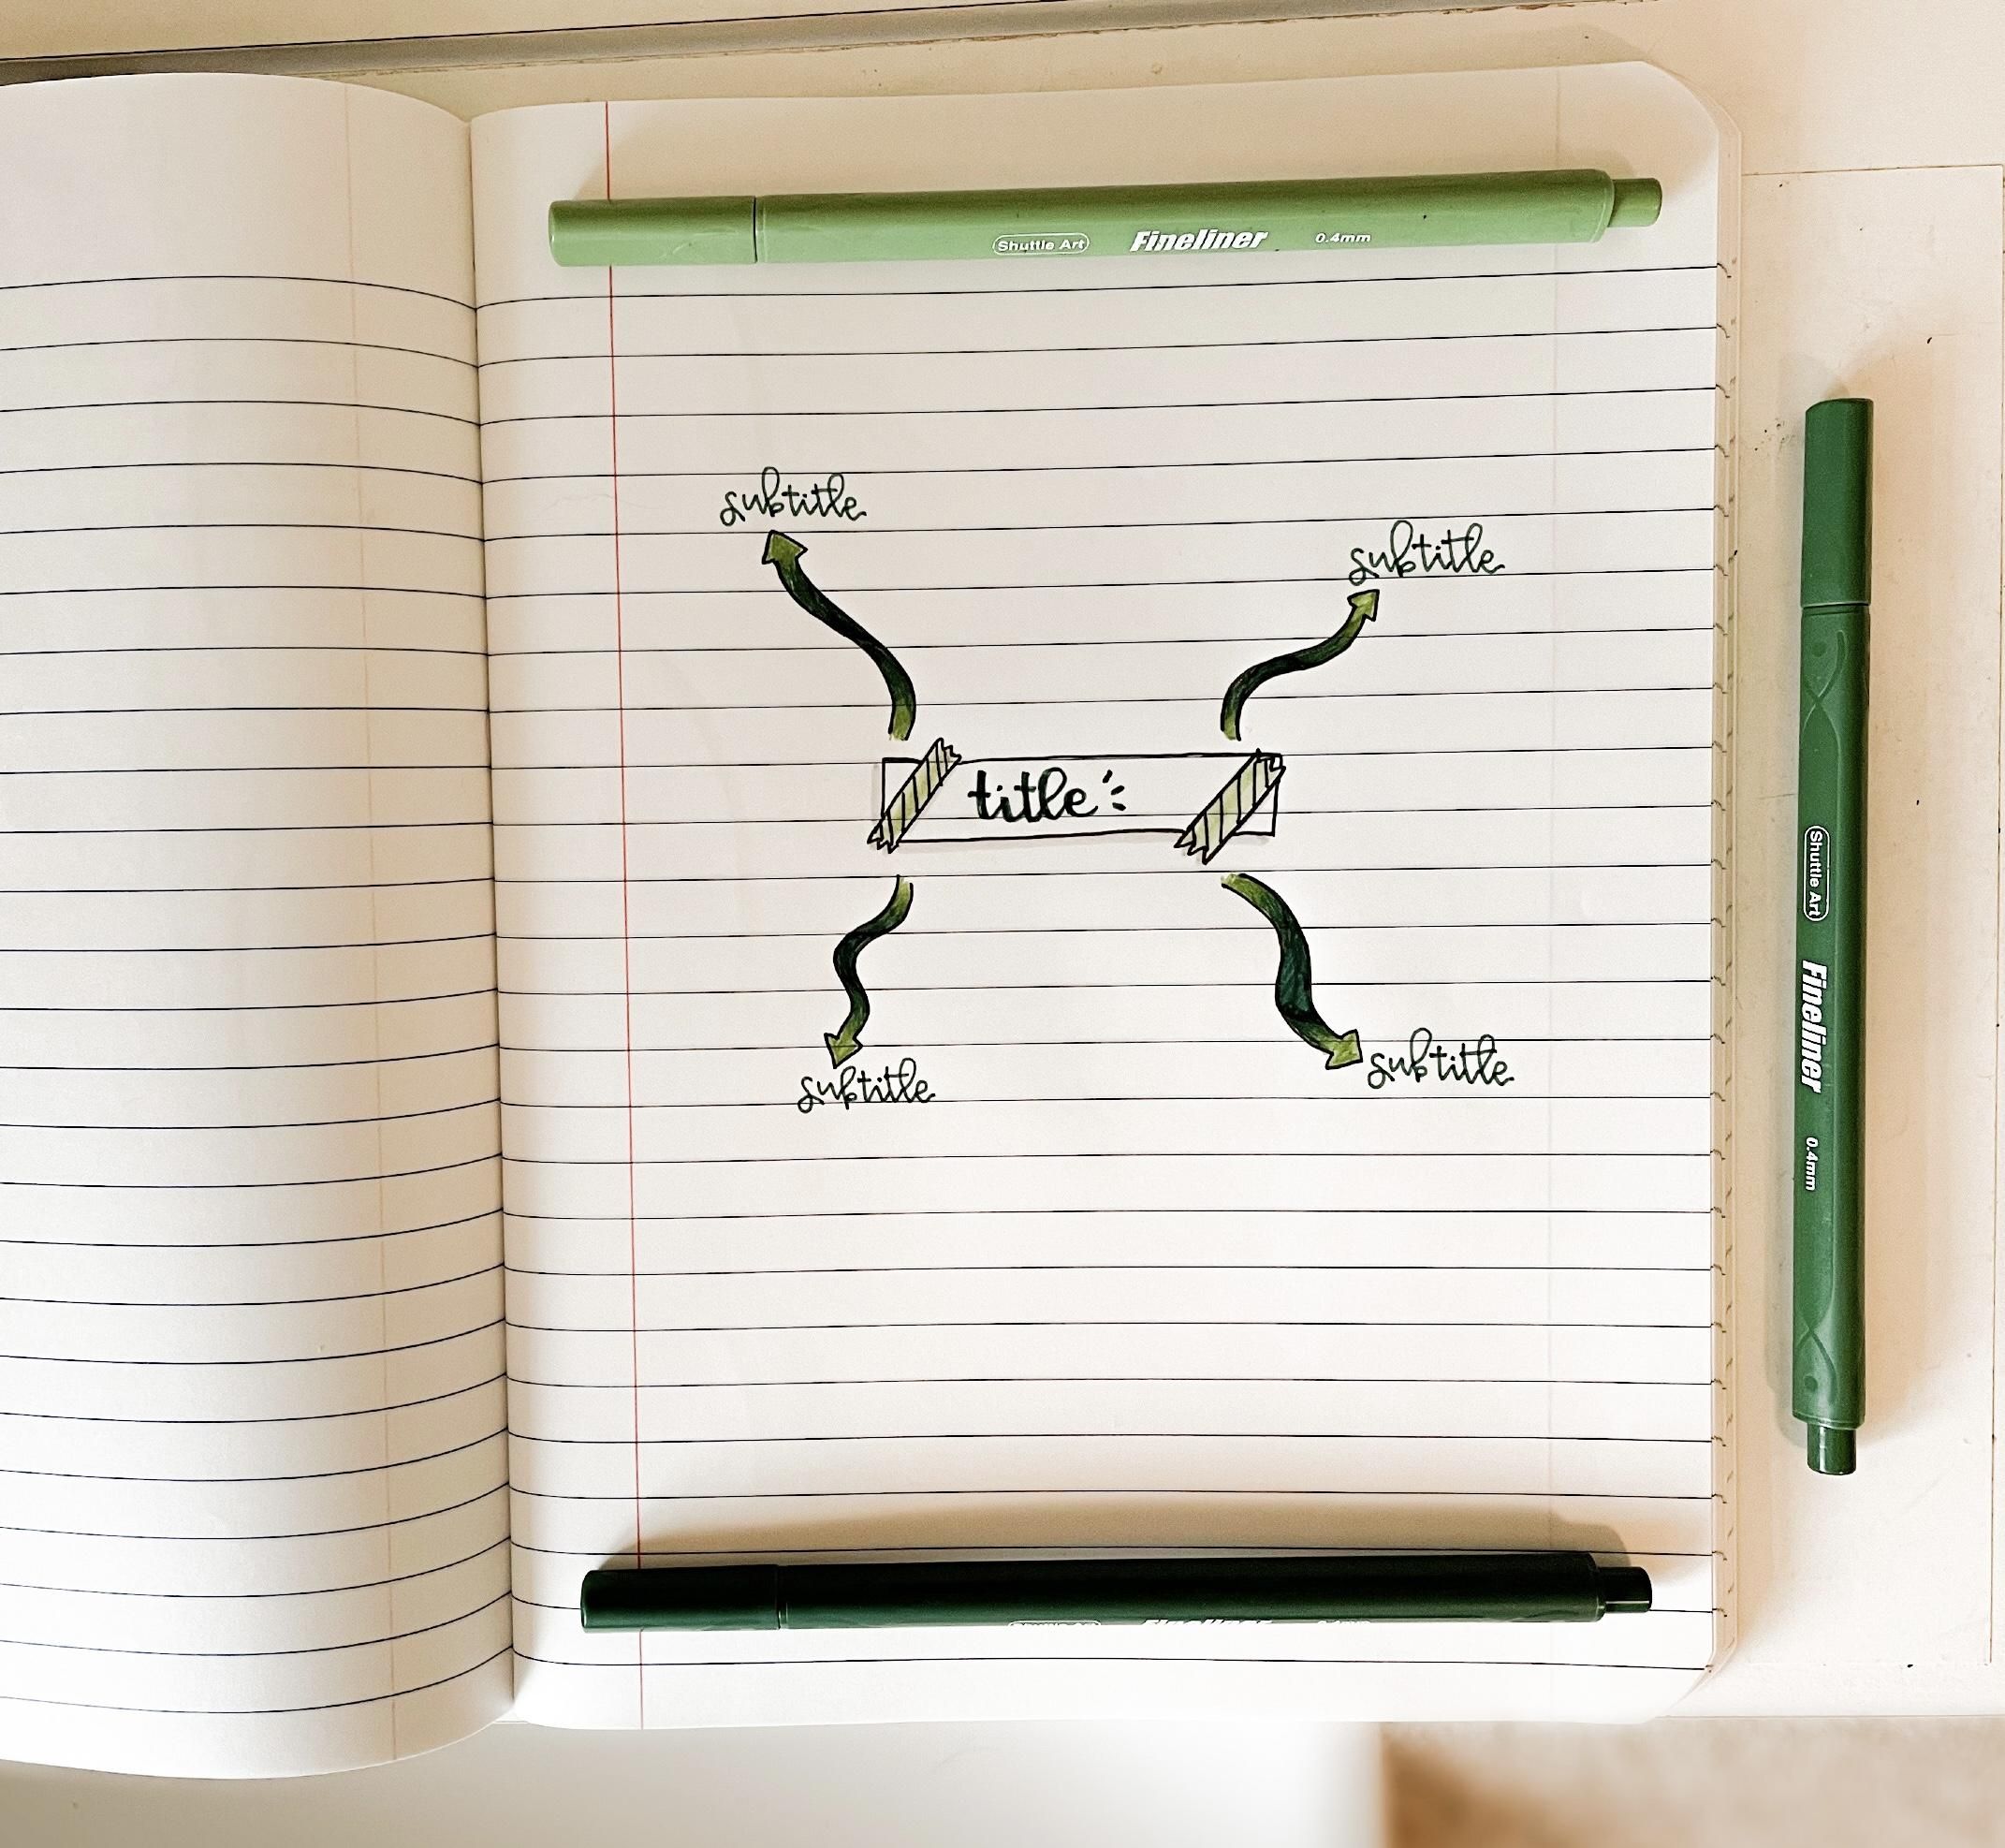 Shuttle Art Fineliner 0.4mm
subtitle
subtitle
title
subtitle
subtitle
Shuttle Art Fineliner 0.4mm